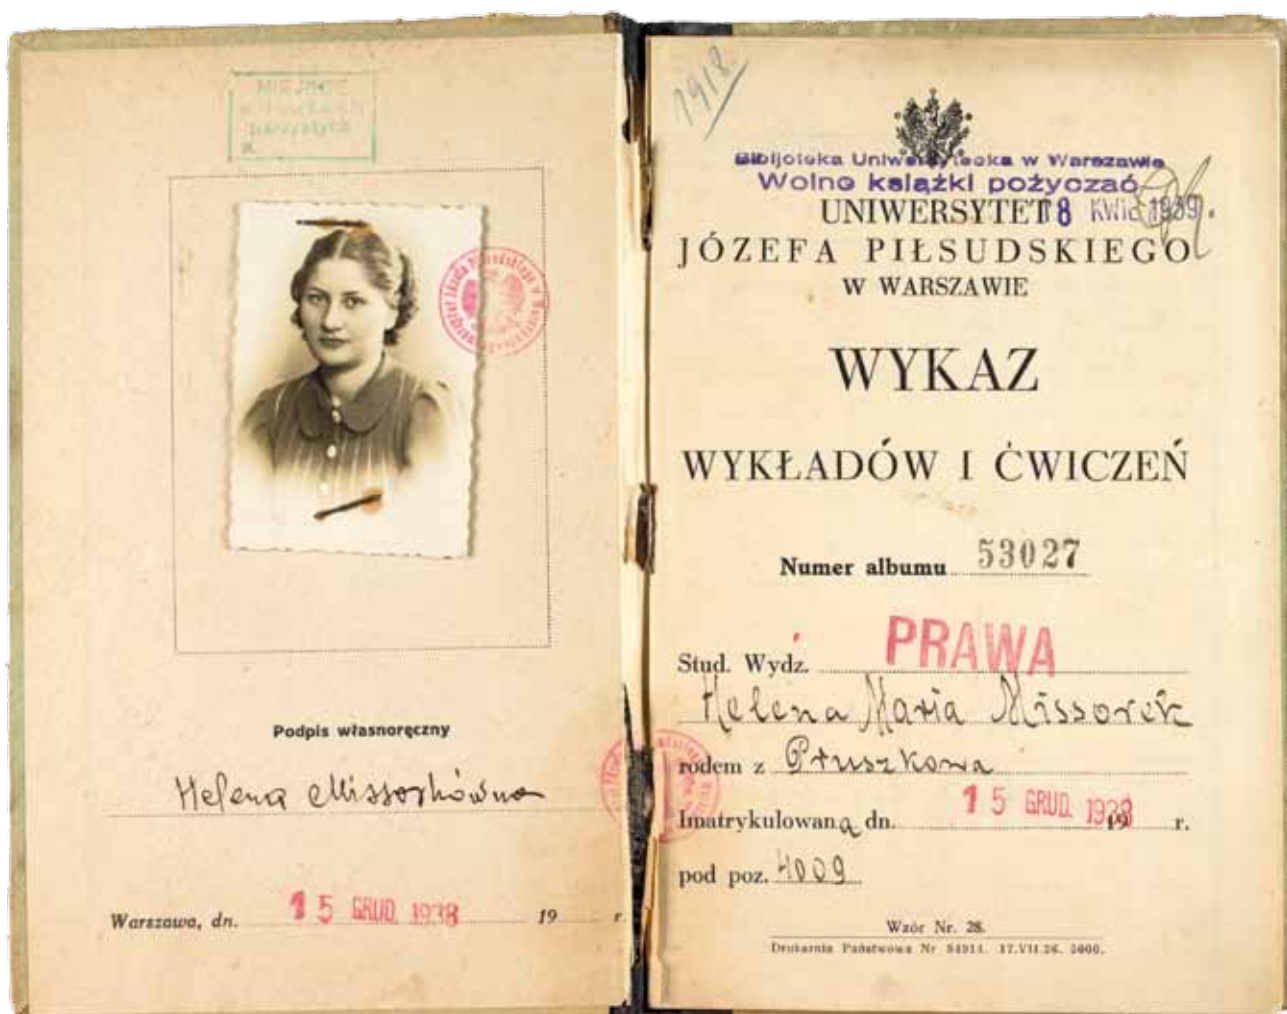 MIEJSCE
Podpis własnoręczny
Helena Missorkówna
Warszawa, dn. 15 GRUD. 1938 19 r.
1918.
Bibljoteka Uniwersytecka w Warszawie
Wolno książki pożyczać
UNIWERSYTET 18 KWIE 1939.
JÓZEFA PIŁSUDSKIEGO
W WARSZAWIE
WYKAZ
WYKŁADÓW I ĆWICZEŃ
Numer albumu 53027
Stud. Wydz. PRAWA
Helena Maria Missorek
rodem z Pruszkowa
Imatrykulowaną dn. 15 GRUD. 1938 19 r.
pod poz. 4009
Wzór Nr. 28.
Drukarnia Państwowa Nr 84914. 17.VII.36. 5000.